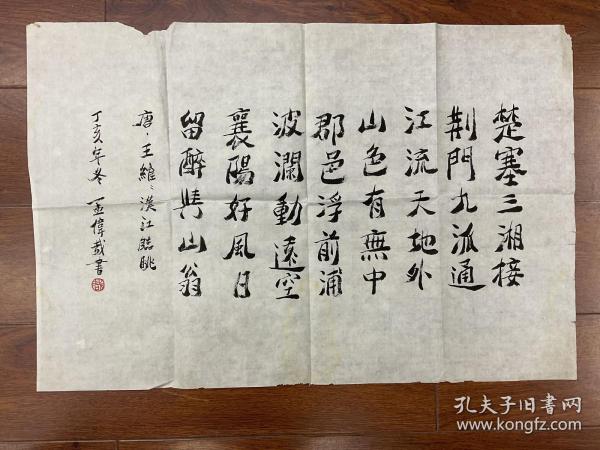 楚塞三湘接
荆門九派通
江流天地外
山色有無中
郡邑浮前浦
波瀾動遠空
襄陽好風日
留醉與山翁
唐·王維：漢江臨眺
丁亥年冬 孟偉哉書
孔夫子旧書网
www.kongfz.com